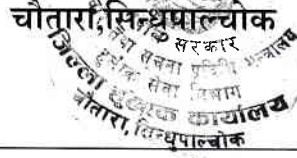 चौतारा,सिन्धुपाल्चोक
सरकार
तथा सूचना प्रविधि मन्त्रालय
हुलाक सेवा विभाग
जिल्ला हुलाक कार्यालय
चौतारा, सिन्धुपाल्चोक